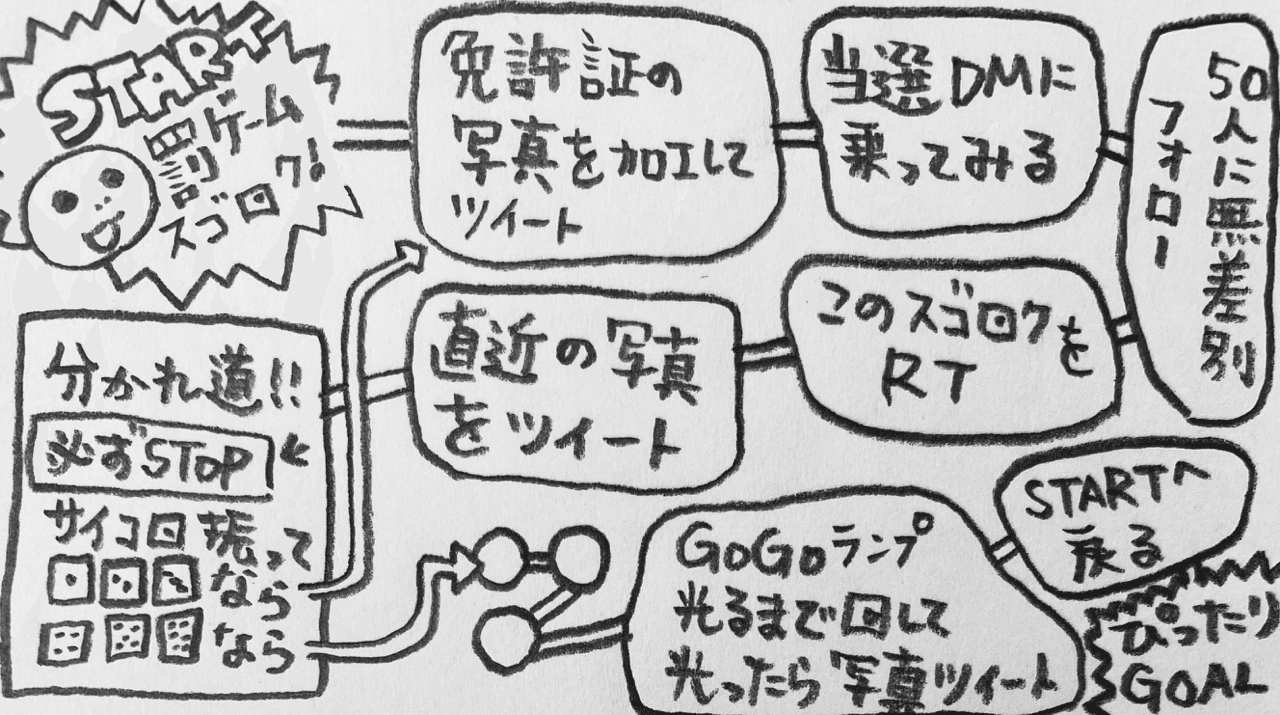 START
罰ゲーム
スゴロク!
免許証の
写真を加工して
ツイート
当選DMに
乗ってみる
50人に無差別
フォロー
このスゴロクを
RT
直近の写真
をツイート
分かれ道!!
必ずSTOP
サイコロ振って
なら
なら
GoGoランプ
光るまで回して
光ったら写真ツイート
STARTへ
戻る
ぴったり
GOAL